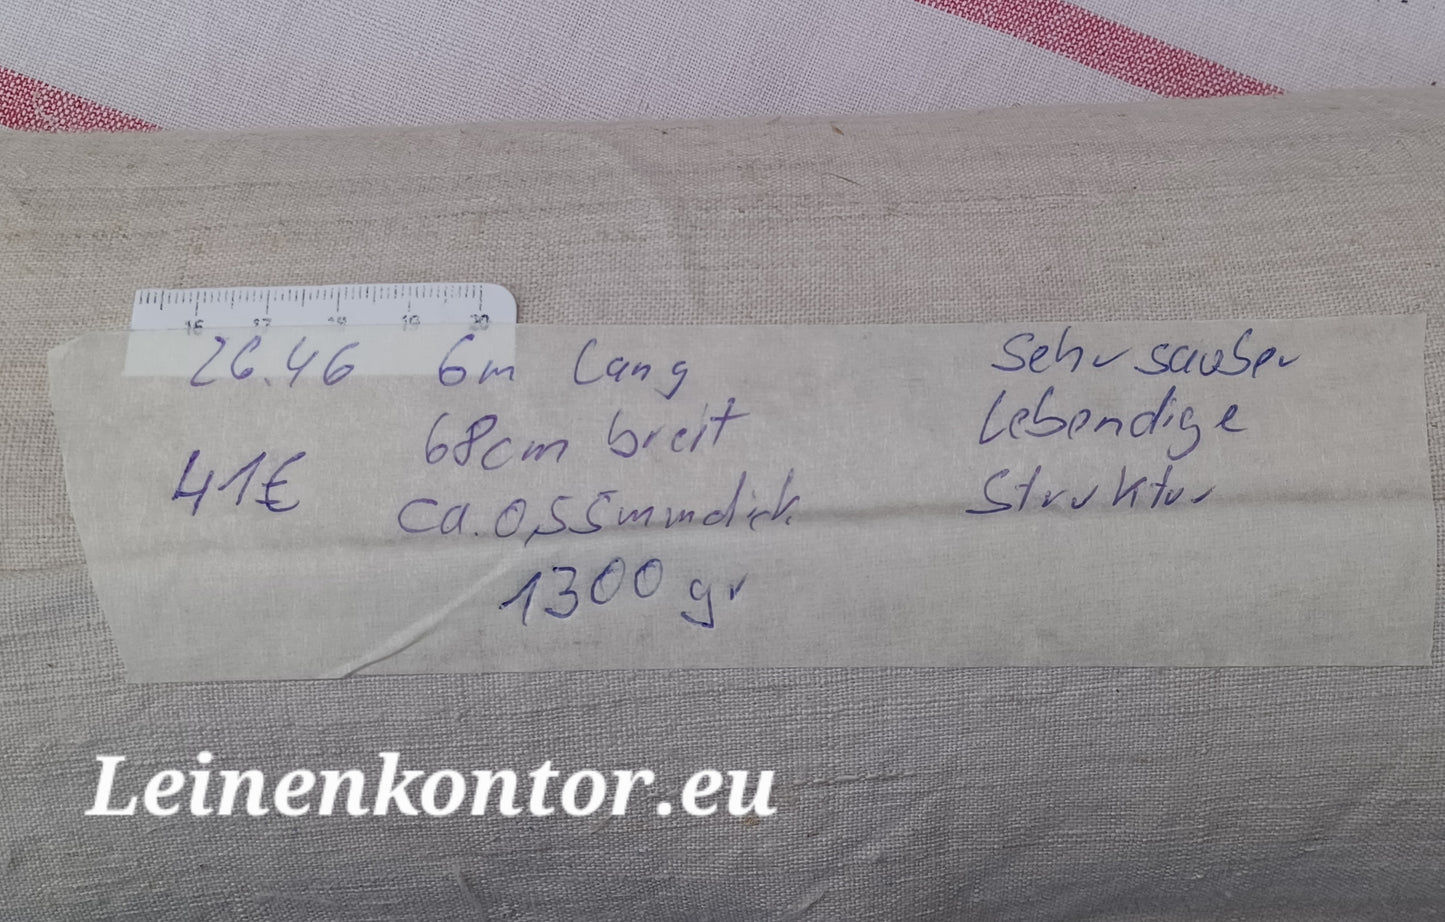 16 17 18 19 20
26.46 6m lang sehr sauber
68cm breit lebendige
41€
ca. 0,55mm dick Struktur
1300 gr
Leinenkontor.eu